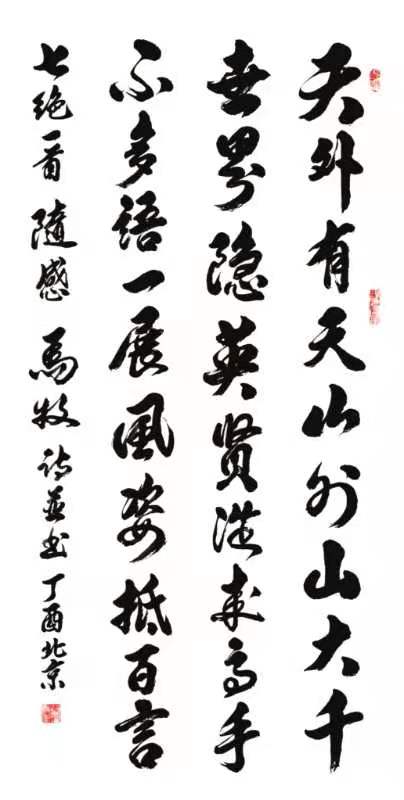 天外有天山外山大千
世界隐英贤從来高手
不多語一展風姿抵百言
七绝一首 隨感 馬牧 诗并书 丁酉北京